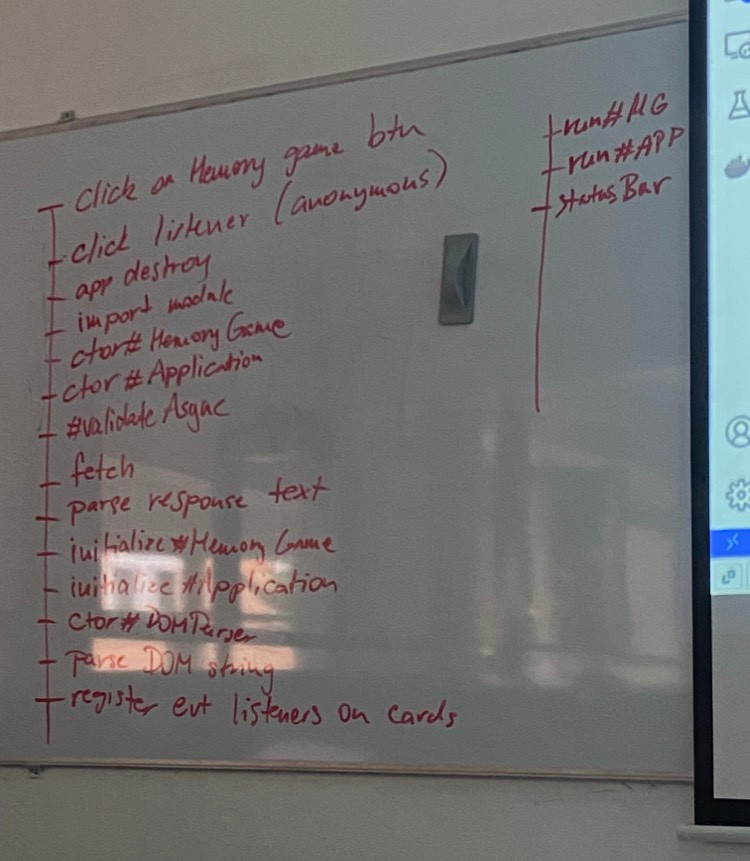 click on Memory game btn
click listener (anonymous)
app destroy
import module
ctor# Memory Game
ctor #Application
#validate Async
fetch
parse response text
initialize #Memory Game
initialize #Application
ctor# DOMParser
parse DOM string
register evt listeners on cards
run#MG
run#APP
status Bar